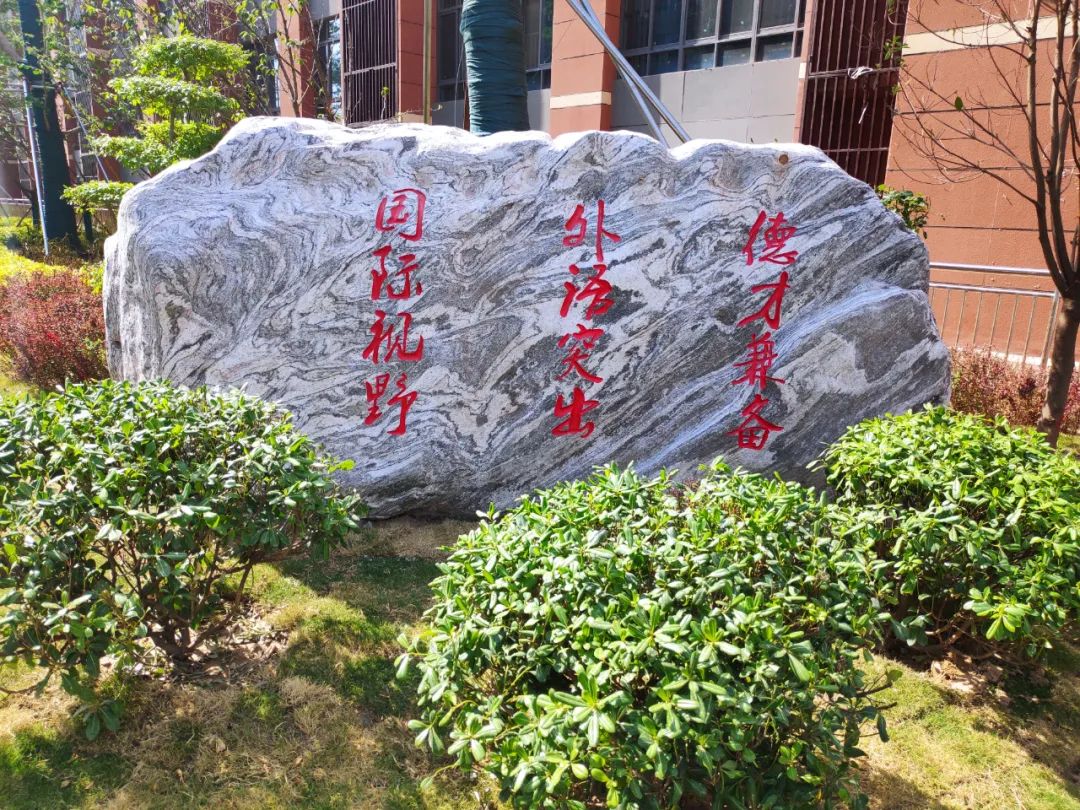 德才兼备
外语突出
国际视野